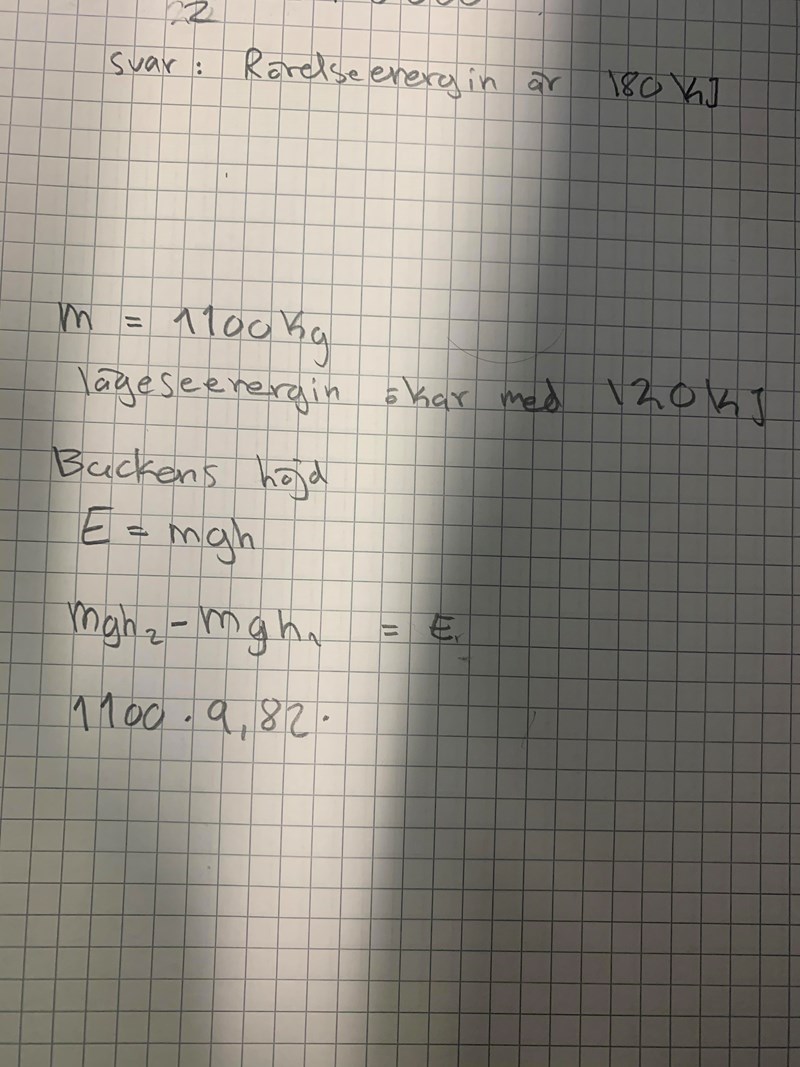 2
svar: Rörelseenergin är 180 KJ
m = 1100 Kg
lägeseenergin ökar med 120 KJ
Backens höjd
E = mgh
mgh₂ - mgh₁ = E
1100 · 9,82 ·